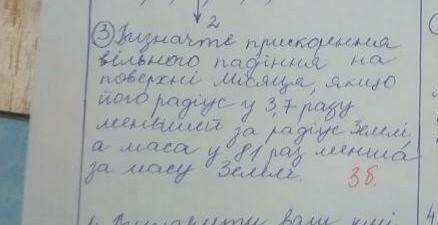 2
③ Визначте прискорення
вільного падіння на
поверхні Місяця, якщо
його радіус у 3,7 разу
менший за радіус Землі,
а маса у 81 раз менша
за масу Землі. 3б.
4.